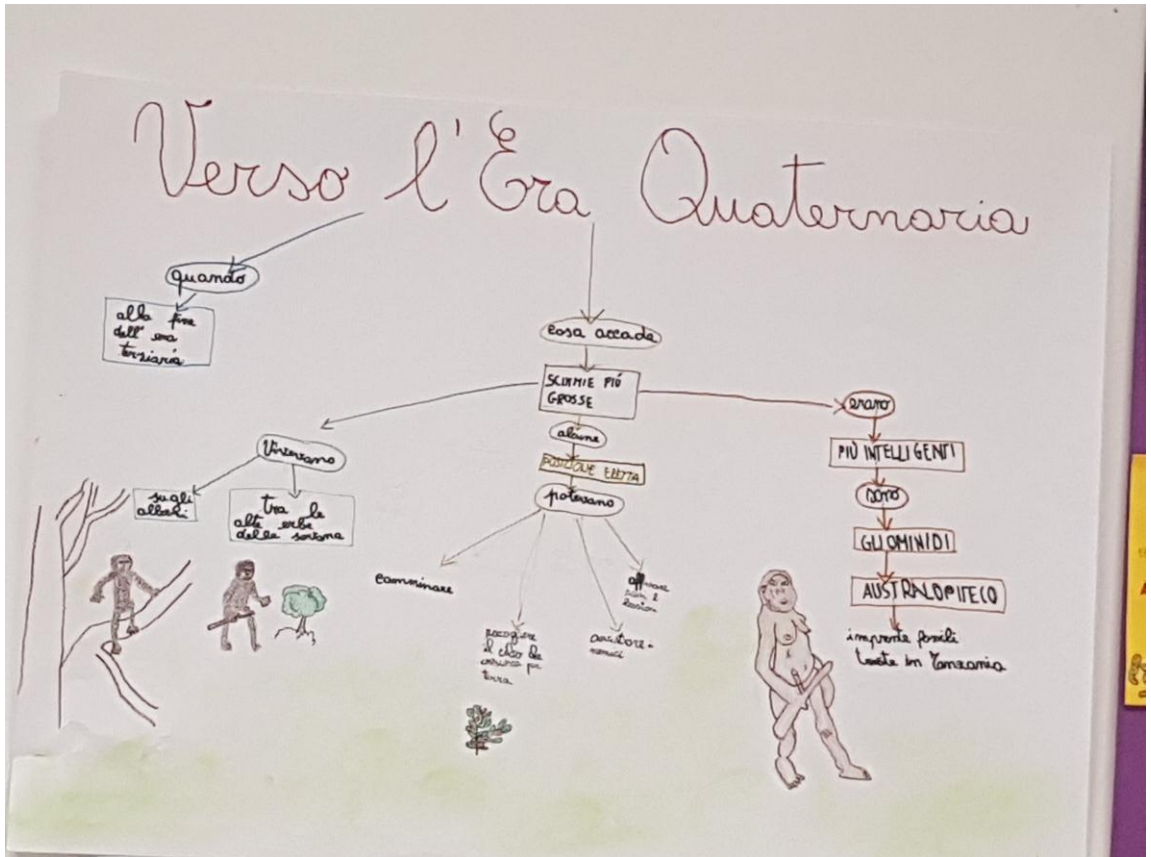 Verso l'Era Quaternaria
quando
alla fine
dell' era
terziaria
cosa accade
SCIMMIE PIÚ
GROSSE
Vivevano
sugli
alberi
tra le
alte erbe
della savana
alcune
POSIZIONE ERETTA
potevano
camminare
raccogliere
il cibo da
terra
avvistare
nemici
erano
PIÙ INTELLIGENTI
sono
GLI OMINIDI
AUSTRALOPITECO
impronte fossili
trovate in Tanzania